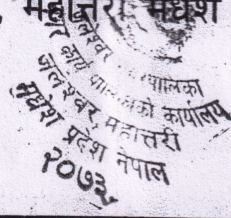 महोत्तरी मधेश
लेश्वर पालिका
कार्य पालिकाको कार्यालय
जलेश्वर, महोत्तरी
मधेश प्रदेश नेपाल
२०७३